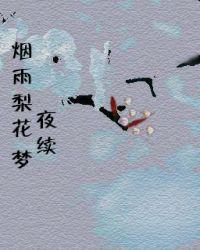 烟雨梨花梦
夜续